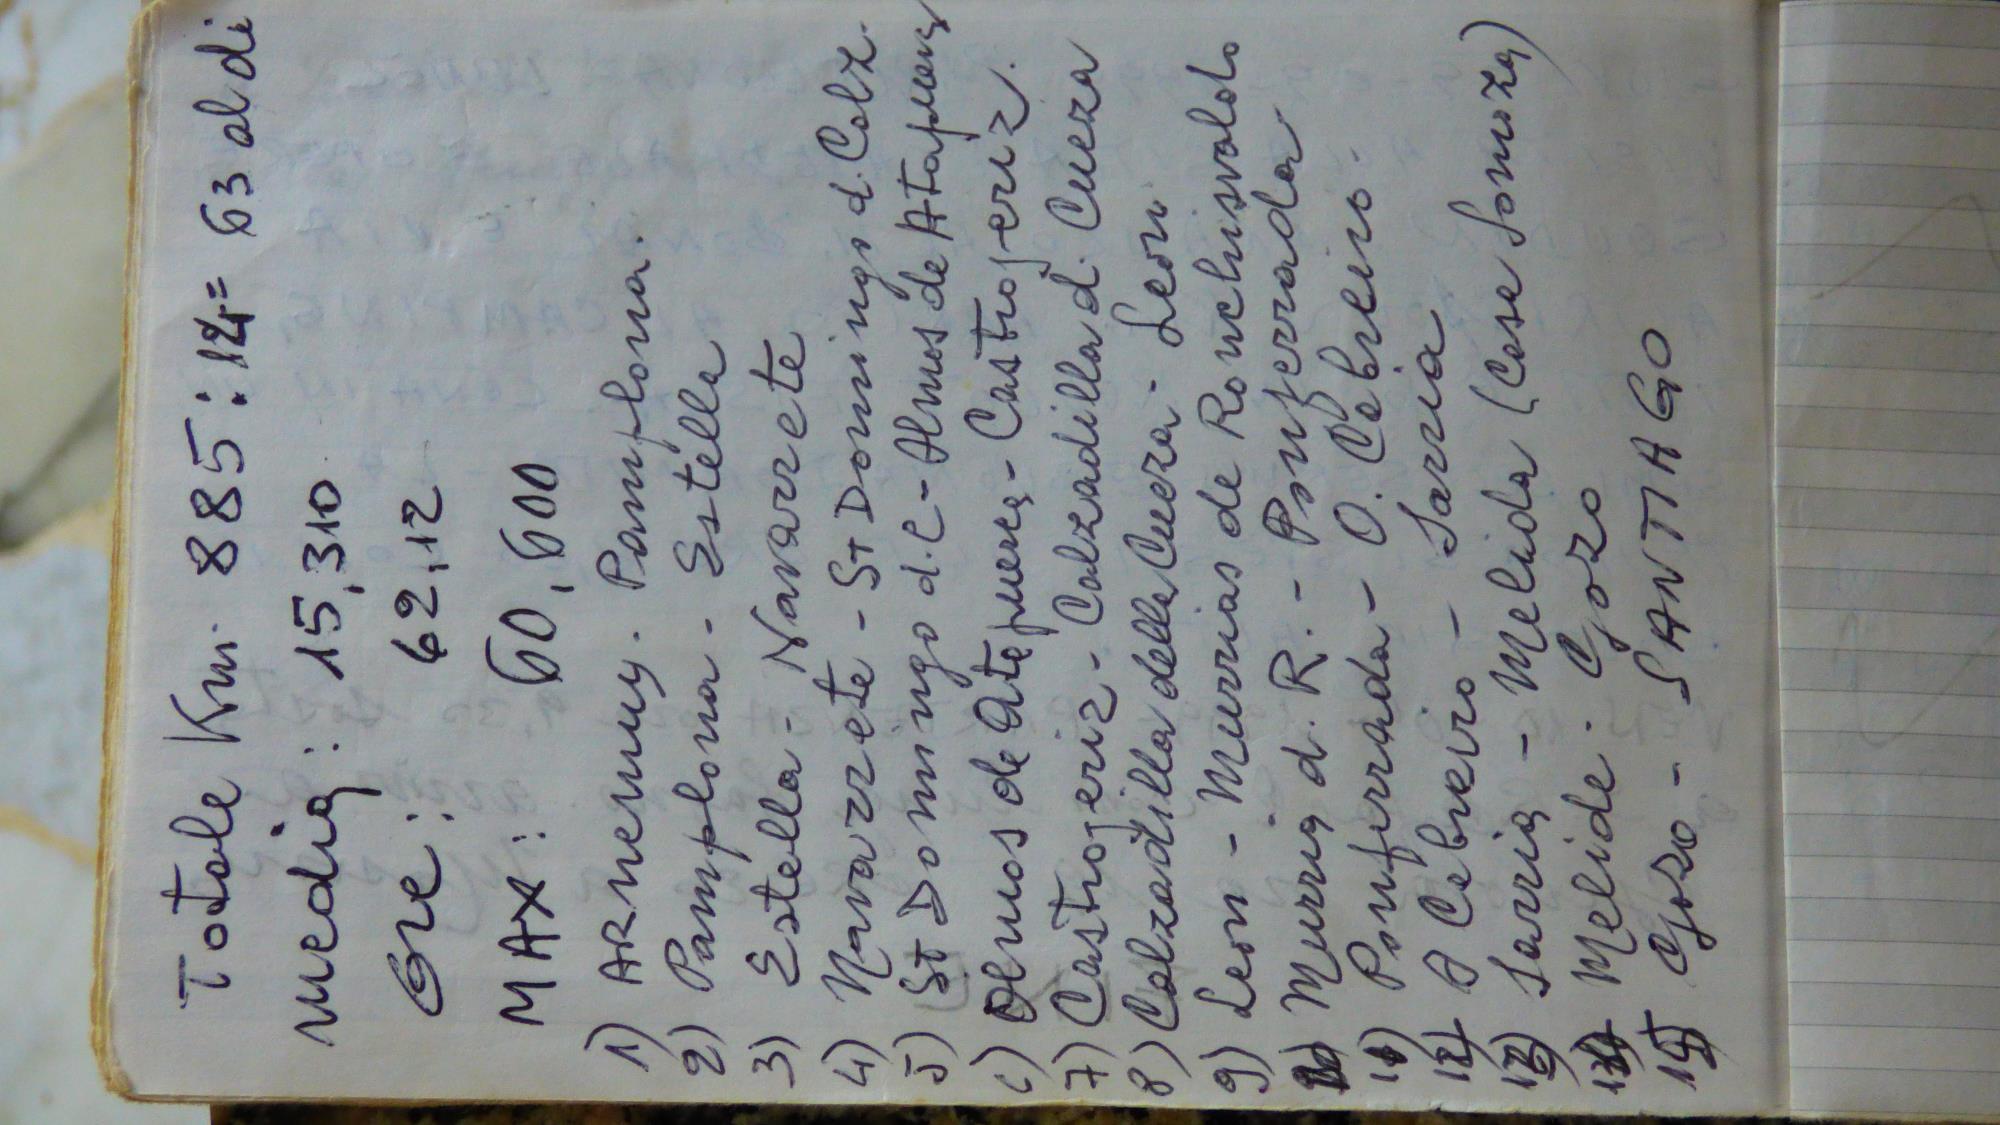 Totale Km. 885:14= 63 al dì
media: 15,310
Ore: 62,12
MAX: 60,600
1) ARneruy. Pamplona.
2) Pamplona. Estella
3) Estella - Navarrete
4) Navarrete - St Domingo d. Calz.
5) St Domingo d.C - Olmos de Atapuerca
6) Olmos de Atapuerca - Castrojeriz.
7) Castrojeriz - Calzadilla d. Cueza
8) Calzadilla della Cueza - Leon
9) Leon - Murrias de Ronchisvaldo
10) Murria d. R. - Ponferrada
11) Ponferrada - O. Cebreiro.
12) A Cebreiro - Sarria
13) Sarria - Melida (Casa Somoza)
14) Melide. Gozo
15) Gozo - SANTIAGO